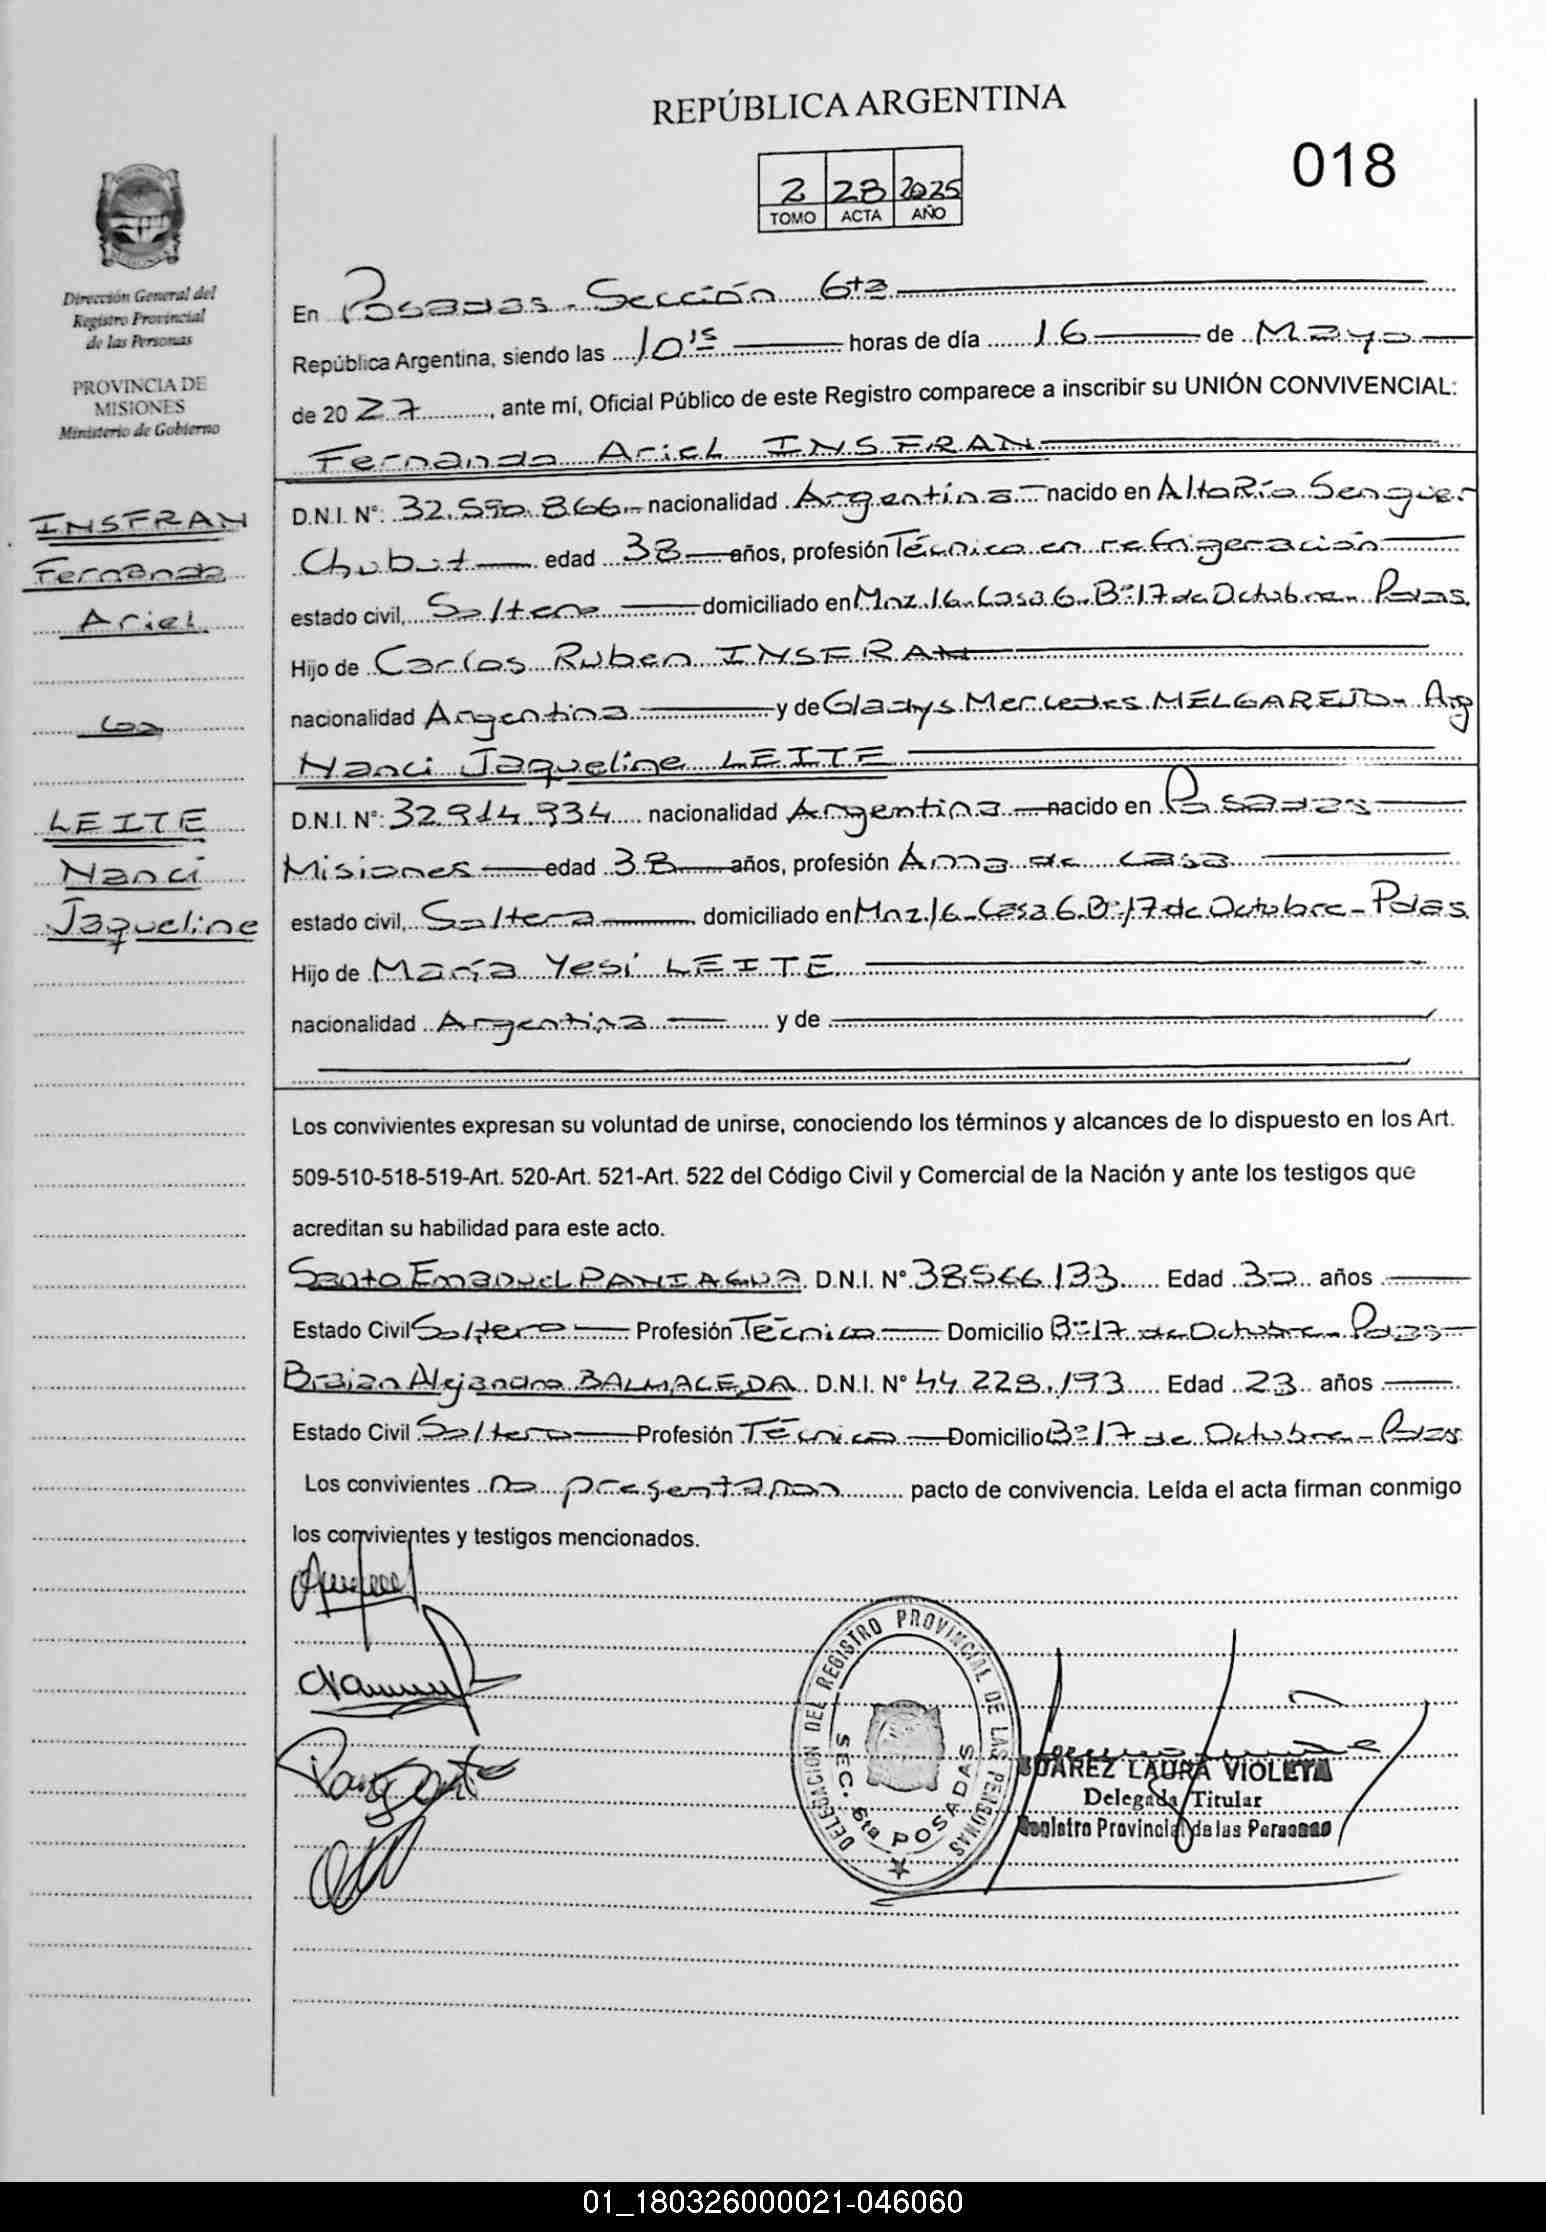 REPÚBLICA ARGENTINA
018
2 28 2025
TOMO ACTA AÑO
Dirección General del
Registro Provincial
de las Personas
PROVINCIA DE
MISIONES
Ministerio de Gobierno
En Posadas - Sección 6ta
República Argentina, siendo las 10 15 horas de día 16 de Mayo
de 20 27, ante mí, Oficial Público de este Registro comparece a inscribir su UNIÓN CONVIVENCIAL:
Fernando Ariel INSFRAN
D.N.I. N°: 32.590.866 nacionalidad Argentina nacido en Alto Río Senguer
Chubut edad 38 años, profesión Técnico en refrigeración
estado civil, Soltero domiciliado en Mnz. 16 - Casa 6 - B° 17 de Octubre - Pdas.
Hijo de Carlos Ruben INSFRAN
nacionalidad Argentina y de Gladys Mercedes MELGAREJO - Arg
Nanci Jaqueline LEITE
D.N.I. N°: 32.914.934 nacionalidad Argentina nacido en Posadas
Misiones edad 38 años, profesión Ama de casa
estado civil, Soltera domiciliado en Mnz. 16 - Casa 6 B° 17 de Octubre - Pdas.
Hijo de María Yesi LEITE
nacionalidad Argentina y de
INSFRAN
Fernando
Ariel
con
LEITE
Nanci
Jaqueline
Los convivientes expresan su voluntad de unirse, conociendo los términos y alcances de lo dispuesto en los Art.
509-510-518-519-Art. 520-Art. 521-Art. 522 del Código Civil y Comercial de la Nación y ante los testigos que
acreditan su habilidad para este acto.
Santo Emanuel PANIAGUA D.N.I. N° 38.566.133 Edad 30 años
Estado Civil Soltero Profesión Técnico Domicilio B° 17 de Octubre - Pdas
Braian Alejandro BALMACEDA D.N.I. N° 44.228.193 Edad 23 años
Estado Civil Soltero Profesión Técnico Domicilio B° 17 de Octubre - Pdas
Los convivientes no presentaron pacto de convivencia. Leída el acta firman conmigo
los convivientes y testigos mencionados.
DELEGACION DEL REGISTRO PROVINCIAL DE LAS PERSONAS
SEC. 6ta POSADAS
SUAREZ LAURA VIOLETA
Delegada Titular
Registro Provincial de las Personas
01_180326000021-046060